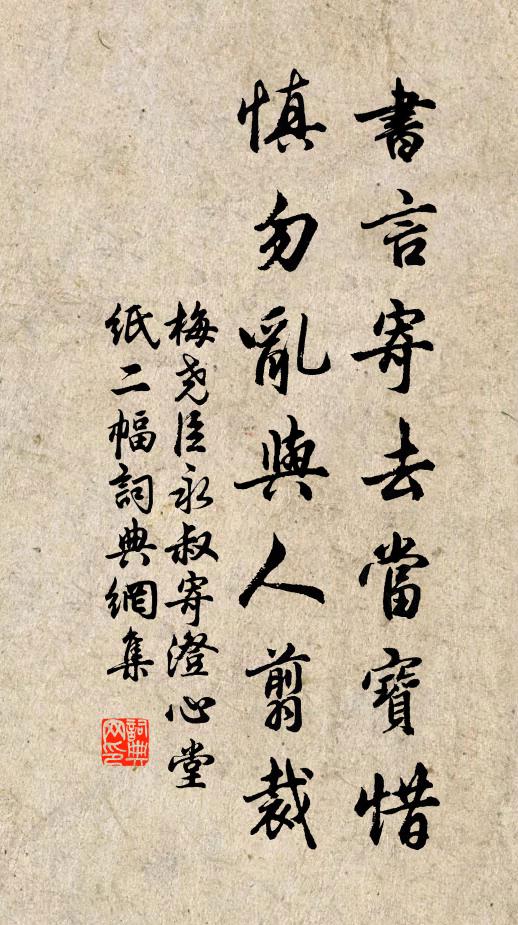 書言寄去當寶惜
慎勿亂與人翦裁
梅尧臣永叔寄澄心堂
纸二幅詞典網集
詞典
网印